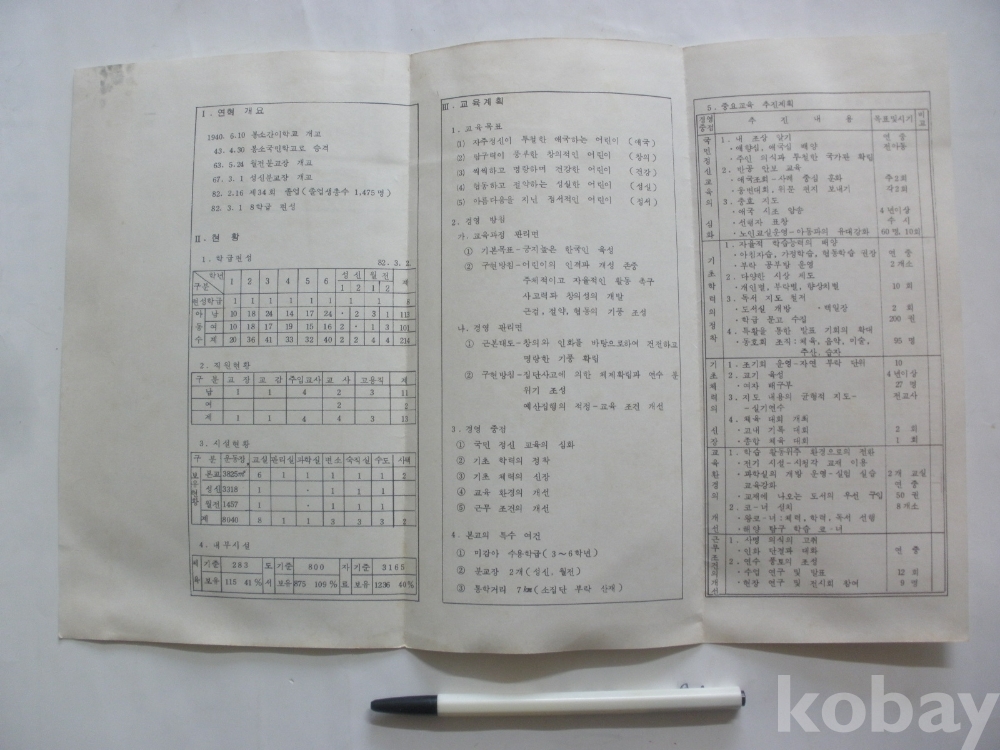 Ⅰ. 연혁 개요
1940. 6.10 봉소간이학교 개교
43. 4.30 봉소국민학교로 승격
63. 5.24 월전분교장 개교
67. 3.1 성신분교장 개교
82. 2.16 제34회 졸업(졸업생총수 1,475명)
82. 3.1 8학급 편성
Ⅱ. 현황
1. 학급편성
82. 3. 2.
학년 1 2 3 4 5 6 성신 월전 계
구분 1 2 1 2
편성학급 1 1 1 1 1 1 1 1 8
아 남 10 18 24 14 17 24 · 2 3 1 113
동 여 10 18 17 19 15 16 2 · 1 3 101
수 계 20 36 41 33 32 40 2 2 4 4 214
2. 직원현황
구분 교장 교감 주임교사 교사 고용직 계
남 1 1 4 2 3 11
여 2 2
계 1 1 4 4 3 13
3. 시설현황
구분 운동장 교실 관리실 과학실 변소 숙직실 수도 사택
본교 3825㎡ 6 1 1 1 1 1 2
성신 3318 1 · 1 1 1
월전 1457 1 · 1 1 1
계 8040 8 1 1 3 3 3 2
4. 내부시설
체 기준 283 도 기준 800 자 기준 3165
육 보유 115 41% 서 보유 875 109% 료 보유 1236 40%
Ⅲ. 교육계획
1. 교육목표
(1) 자주정신이 투철한 애국하는 어린이 (애국)
(2) 탐구력이 풍부한 창의적인 어린이 (창의)
(3) 씩씩하고 명랑하며 건강한 어린이 (건강)
(4) 협동하고 절약하는 성실한 어린이 (성실)
(5) 아름다움을 지닌 질서적인 어린이 (질서)
2. 경영 방침
가. 교육과정 관리면
① 기본목표-긍지높은 한국인 육성
② 구현방침-어린이의 인격과 개성 존중
주체적이고 자율적인 활동 촉구
사고력과 창의성의 개발
근검, 절약, 협동의 기풍 조성
나. 경영 관리면
① 근본태도-창의와 인화를 바탕으로하여 전진하고
명랑한 기풍 확립
② 구현방침-집단사고에 의한 체제확립과 연수 분
위기 조성
예산집행의 적정-교육 조건 개선
3. 경영 중점
① 국민 정신 교육의 심화
② 기초 학력의 정착
③ 기초 체력의 신장
④ 교육 환경의 개선
⑤ 근무 조건의 개선
4. 본교의 특수 여건
① 미감아 수용학급(3~6학년)
② 분교장 2개(성신, 월전)
③ 통학거리 7㎞(소집단 부락 산재)
5. 중요교육 추진계획
경영중점 추진내용 목표및시기 비고
국민정신교육의 심화
1. 내 조상 알기 연중
· 애향심, 애국심 배양 전아동
· 주인 의식과 투철한 국가관 확립
2. 반공 안보 교육
· 애국조회-사례 중심 훈화 주2회
· 웅변대회, 위문 편지 보내기 각2회
3. 충효 지도
· 애국 시조 암송 4편이상
· 선행자 표창 수시
· 노인교실운영-아동과의 유대강화 60명, 10회
기초학력의 정착
1. 자율적 학습능력의 배양
· 아침자습, 가정학습, 협동학습 권장 연중
· 부락 공부방 운영 2개소
2. 다양한 시상 제도
· 개인별, 부락별, 향상회별 10회
3. 독서 지도 철저
· 도서실 개방 · 백일장 2회
· 학급 문고 수집 200권
4. 특활을 통한 발표 기회의 확대
· 동호회 조직:체육, 음악, 미술, 95명
주산, 습자
기초체력의 신장
1. 조기회 운영-자연 부락 단위 10
2. 교기 육성 4년이상
· 여자 배구부 27명
3. 지도 내용의 균형적 지도- 전교사
-실기연수
4. 체육 대회 개최
· 교내 기록 대회 2회
· 종합 체육 대회 1회
교육환경의 개선
1. 학습 활동위주 환경으로의 전환
· 전기 시설-시청각 교재 이용
· 과학실의 개방 운영-실험 실습 2개 교실
교육강화 연중
· 교재에 나오는 도서의 우선 구입 50권
2. 코-너 설치 8개소
· 향코-너:체력, 학력, 독서 선행
· 해양 탐구 학습 코-너
근무조건의 개선
1. 사명 의식의 고취
· 인화 단결과 대화 연중
2. 연수 풍토의 조성
· 수업 연구 및 발표 12회
· 현장 연구 및 전시회 참여 9명
kobay